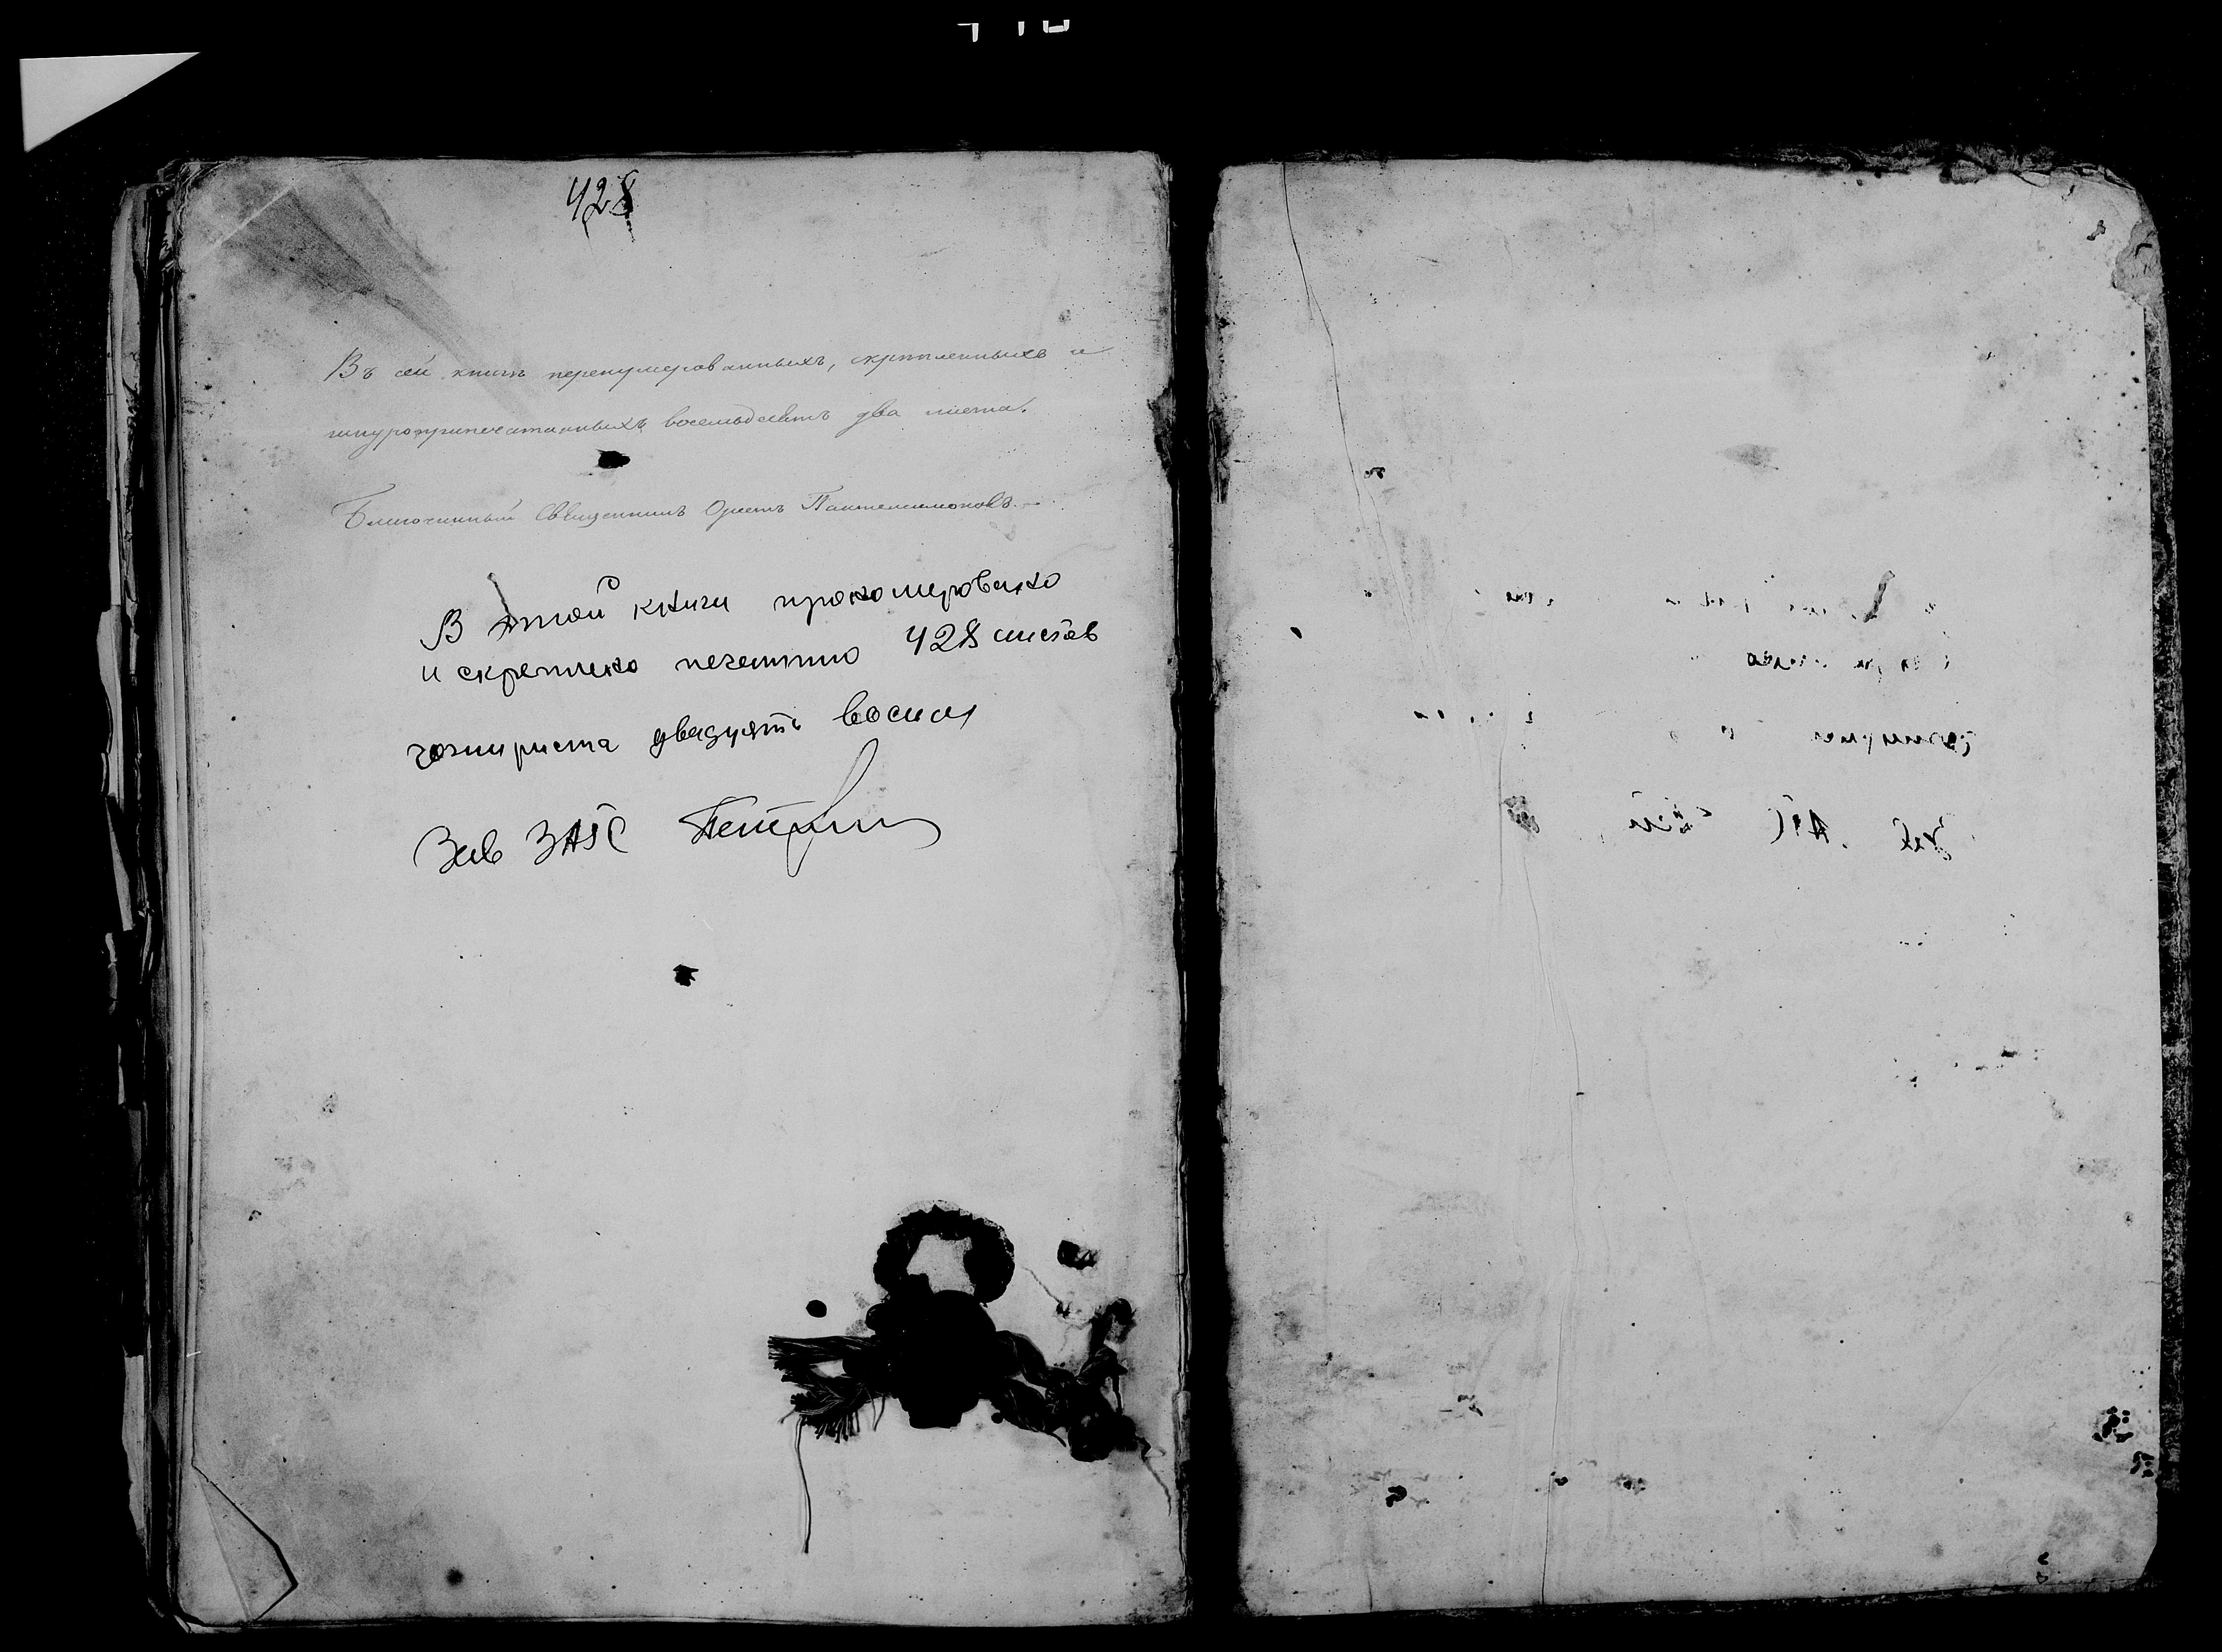 428
Въ сей книгѣ перенумерованныхъ, скрѣпленныхъ и
шнуроприпечатанныхъ восемьдесятъ два листа.
Благочинный Священникъ Орестъ Пантелимоновъ.—
В этой книги прономеровано
и скреплено печаттю 428 листов
чотыриста двадцять восим
Зав ЗАГС